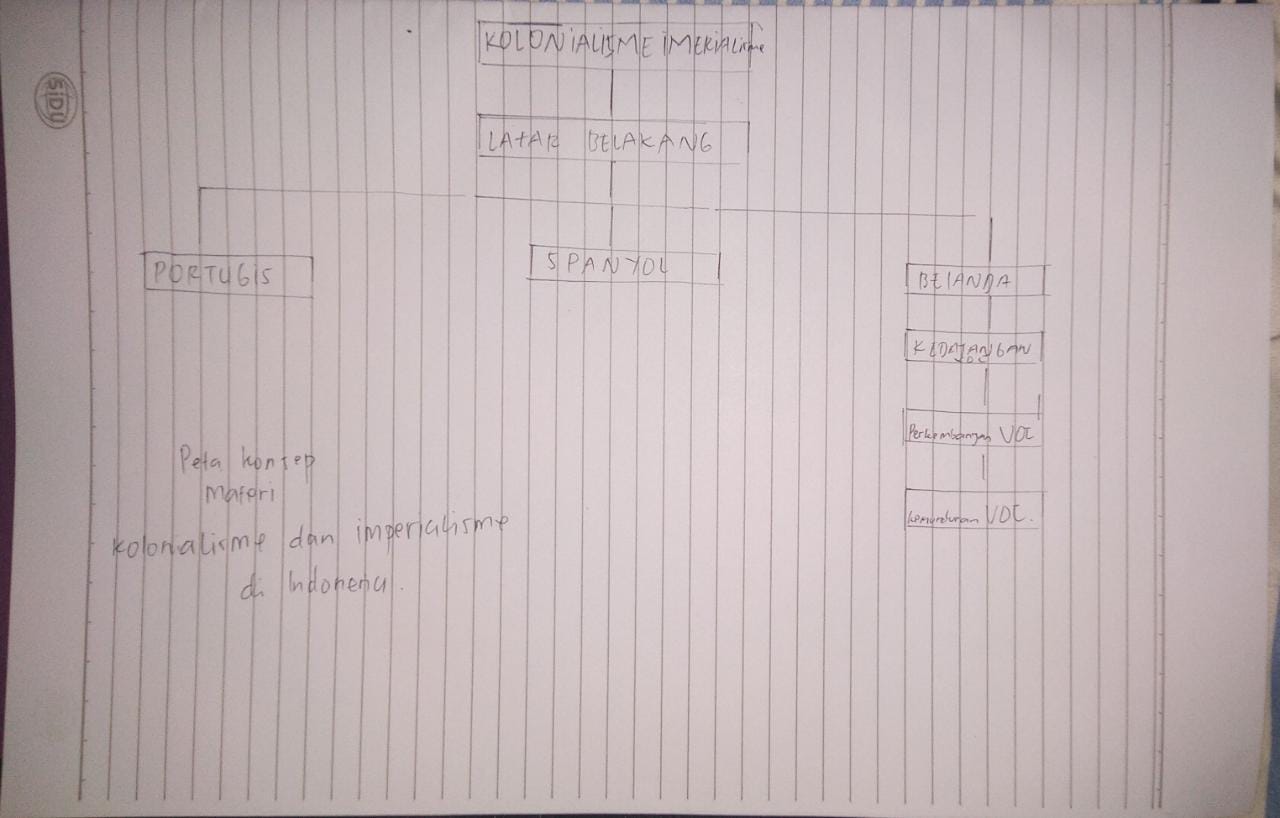 KOLONIALISME IMERIALisme
LATAR BELAKANG
PORTUGIS
SPANYOL
BELANDA
KEDATANGAN
VOC
Perkembangan VOC
kemunduran VOC.
Peta konsep
Materi
kolonialisme dan imperialisme
di Indonesia.
SiDU